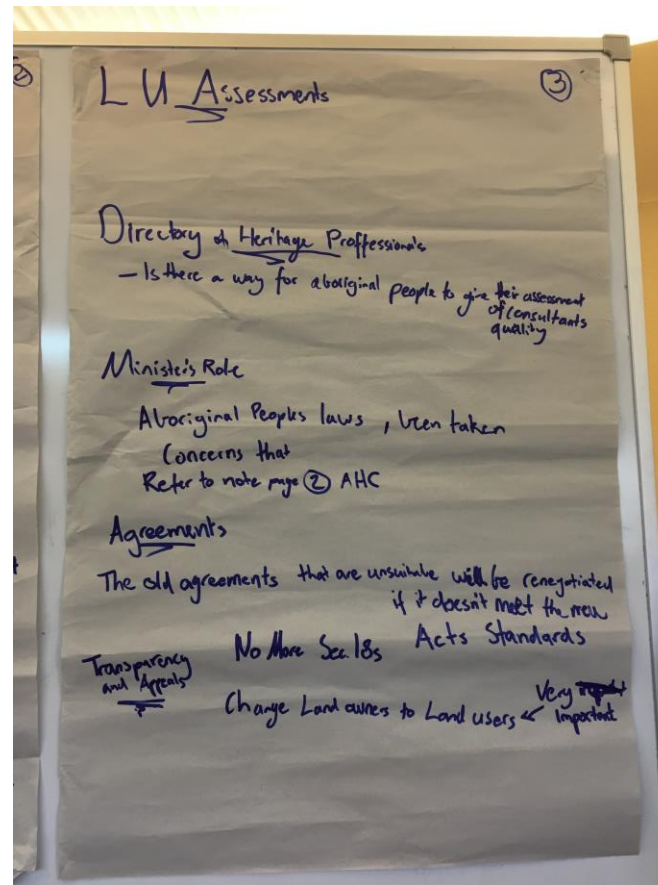 L U Assessments ③
②
Directory of Heritage Proffessionals
- Is there a way for aboriginal people to give their assessment
of consultants
quality
Minister's Role
Aboriginal Peoples laws, been taken
Concerns that
Refer to note page ② AHC
Agreements
The old agreements that are unsuitable will be renegotiated
if it doesn't meet the new
Acts Standards
No More Sec 18s
Transparency
and Appeals
Change Land owners to Land users ← Very
Important